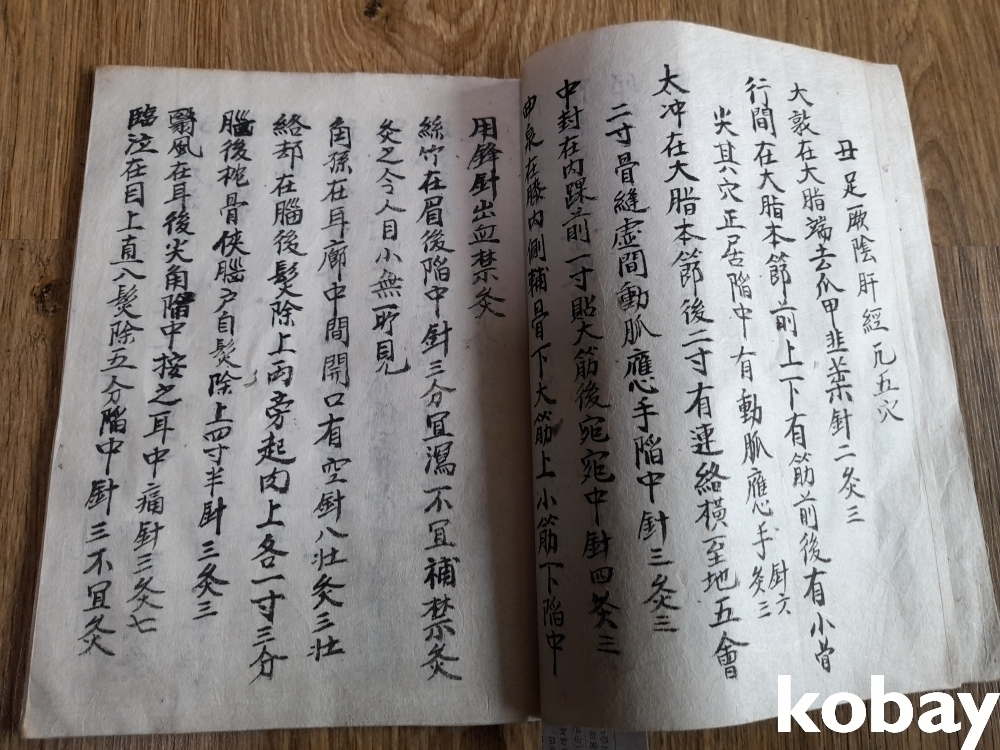 丑足厥陰肝經凡五穴
大敦在大脂端去爪甲韭葉針二灸三
行間在大脂本節前上下有筋前後有小骨
尖其穴正居陷中有動脈應手針六灸三
太冲在大脂本節後二寸有連絡橫至地五會
二寸骨縫虛間動脈應手陷中針三灸三
中封在內踝前一寸貼大筋後宛宛中針四灸三
曲泉在膝內側輔骨下大筋上小筋下陷中
用鋒針出血禁灸
絲竹在眉後陷中針三分宜瀉不宜補禁灸
灸之令人目小無所見
角孫在耳廓中間開口有空針八壯灸三壯
絡却在腦後髮除上兩旁起肉上各一寸三分
腦後枕骨俠腦戶自髮除上四寸半針三灸三
翳風在耳後尖角陷中按之耳中痛針三灸七
臨泣在目上直八髮除五分陷中針三不宜灸
kobay